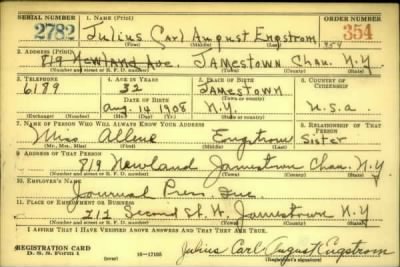 SERIAL NUMBER 1. NAME (Print) ORDER NUMBER
2782 Julius Carl August Engstrom 354
(First) (Middle) (Last) 354
2. ADDRESS (Print)
819 Newland Ave. Jamestown Chau. N.Y.
(Number and street or R. F. D. number) (Town) (County) (State)
3. TELEPHONE 4. AGE IN YEARS 5. PLACE OF BIRTH 6. COUNTRY OF CITIZENSHIP
6189 32 Jamestown
DATE OF BIRTH (Town or county)
Aug. 14 1908 N.Y. U.S.A.
(Exchange) (Number) (Mo.) (Day) (Yr.) (State or country)
7. NAME OF PERSON WHO WILL ALWAYS KNOW YOUR ADDRESS 8. RELATIONSHIP OF THAT PERSON
Miss Allene Engstrom Sister
(Mr., Mrs., Miss) (First) (Middle) (Last)
9. ADDRESS OF THAT PERSON
819 Newland Jamestown Chau. N.Y.
(Number and street or R. F. D. number) (Town) (County) (State)
10. EMPLOYER'S NAME
Journal Press Inc.
11. PLACE OF EMPLOYMENT OR BUSINESS
212 Second St. W. Jamestown N.Y.
(Number and street or R. F. D. number) (Town) (County) (State)
I AFFIRM THAT I HAVE VERIFIED ABOVE ANSWERS AND THAT THEY ARE TRUE.
REGISTRATION CARD
D. S. S. Form 1 (over) Julius Carl August Engstrom
(Registrant's signature)